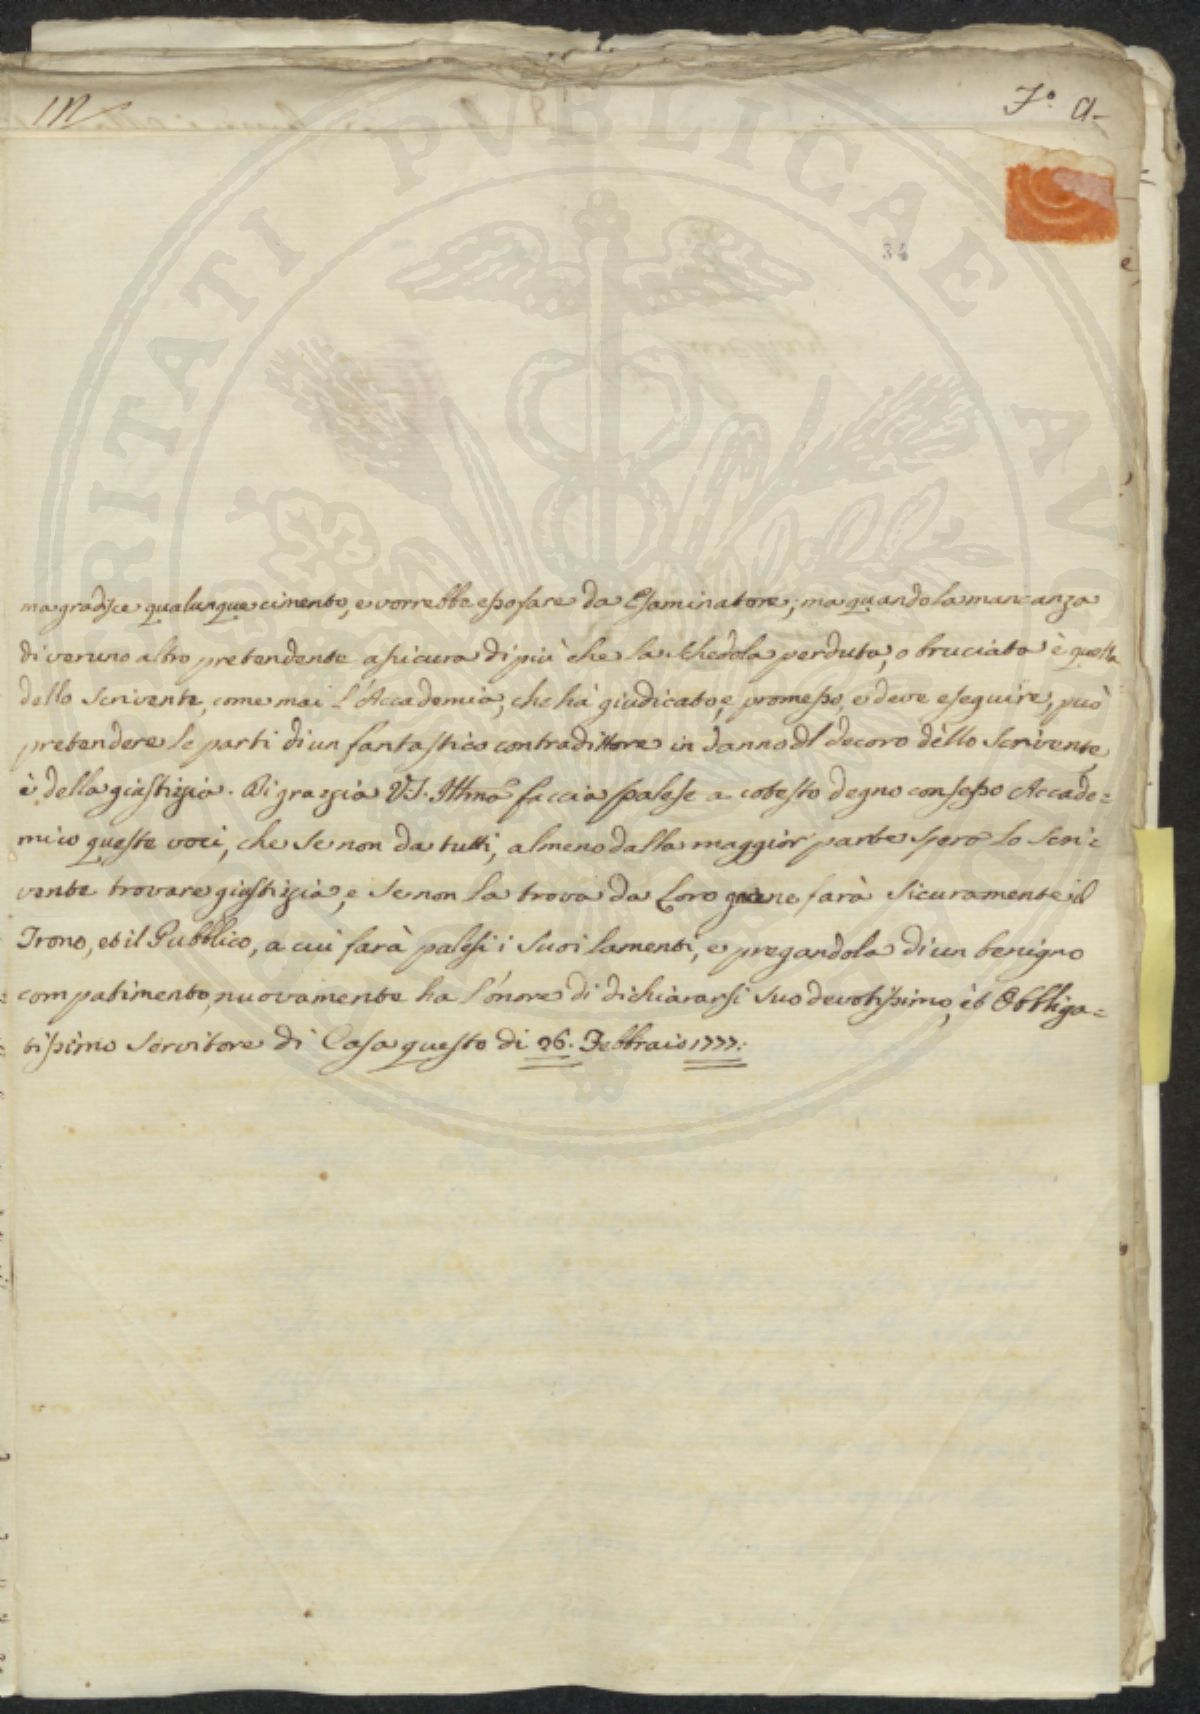 Fo. a.
PVBLICAE
34
ma gradisce qualunque cimento, e vorrebbe esso fare da Esaminatore; ma quando la mancanza
di veruno altro pretendente assicura di più che la schedola perduta, o bruciata è quella
dello scrivente, come mai l'Accademia, che hà giudicato, e promesso, e deve eseguire, può
pretendere le parti di un fantastico contradittore in danno del decoro dello scrivente
è della giustizia. Di grazia V.S. Illma faccia palese a cotesto degno consesso Accade=
mico queste voci, che se non da tutti, almeno dalla maggior parte spera lo scri=
vente trovare giustizia, e se non la trova da loro ne farà sicuramente il
Trono, et il Pubblico, a cui farà palesi i suoi lamenti, e pregandola di un benigno
compatimento, nuovamente ha l'onore di dichiararsi suo devotissimo, èt Obbliga=
tissimo servitore di Casa questo dì 26. Febbraio 1777: